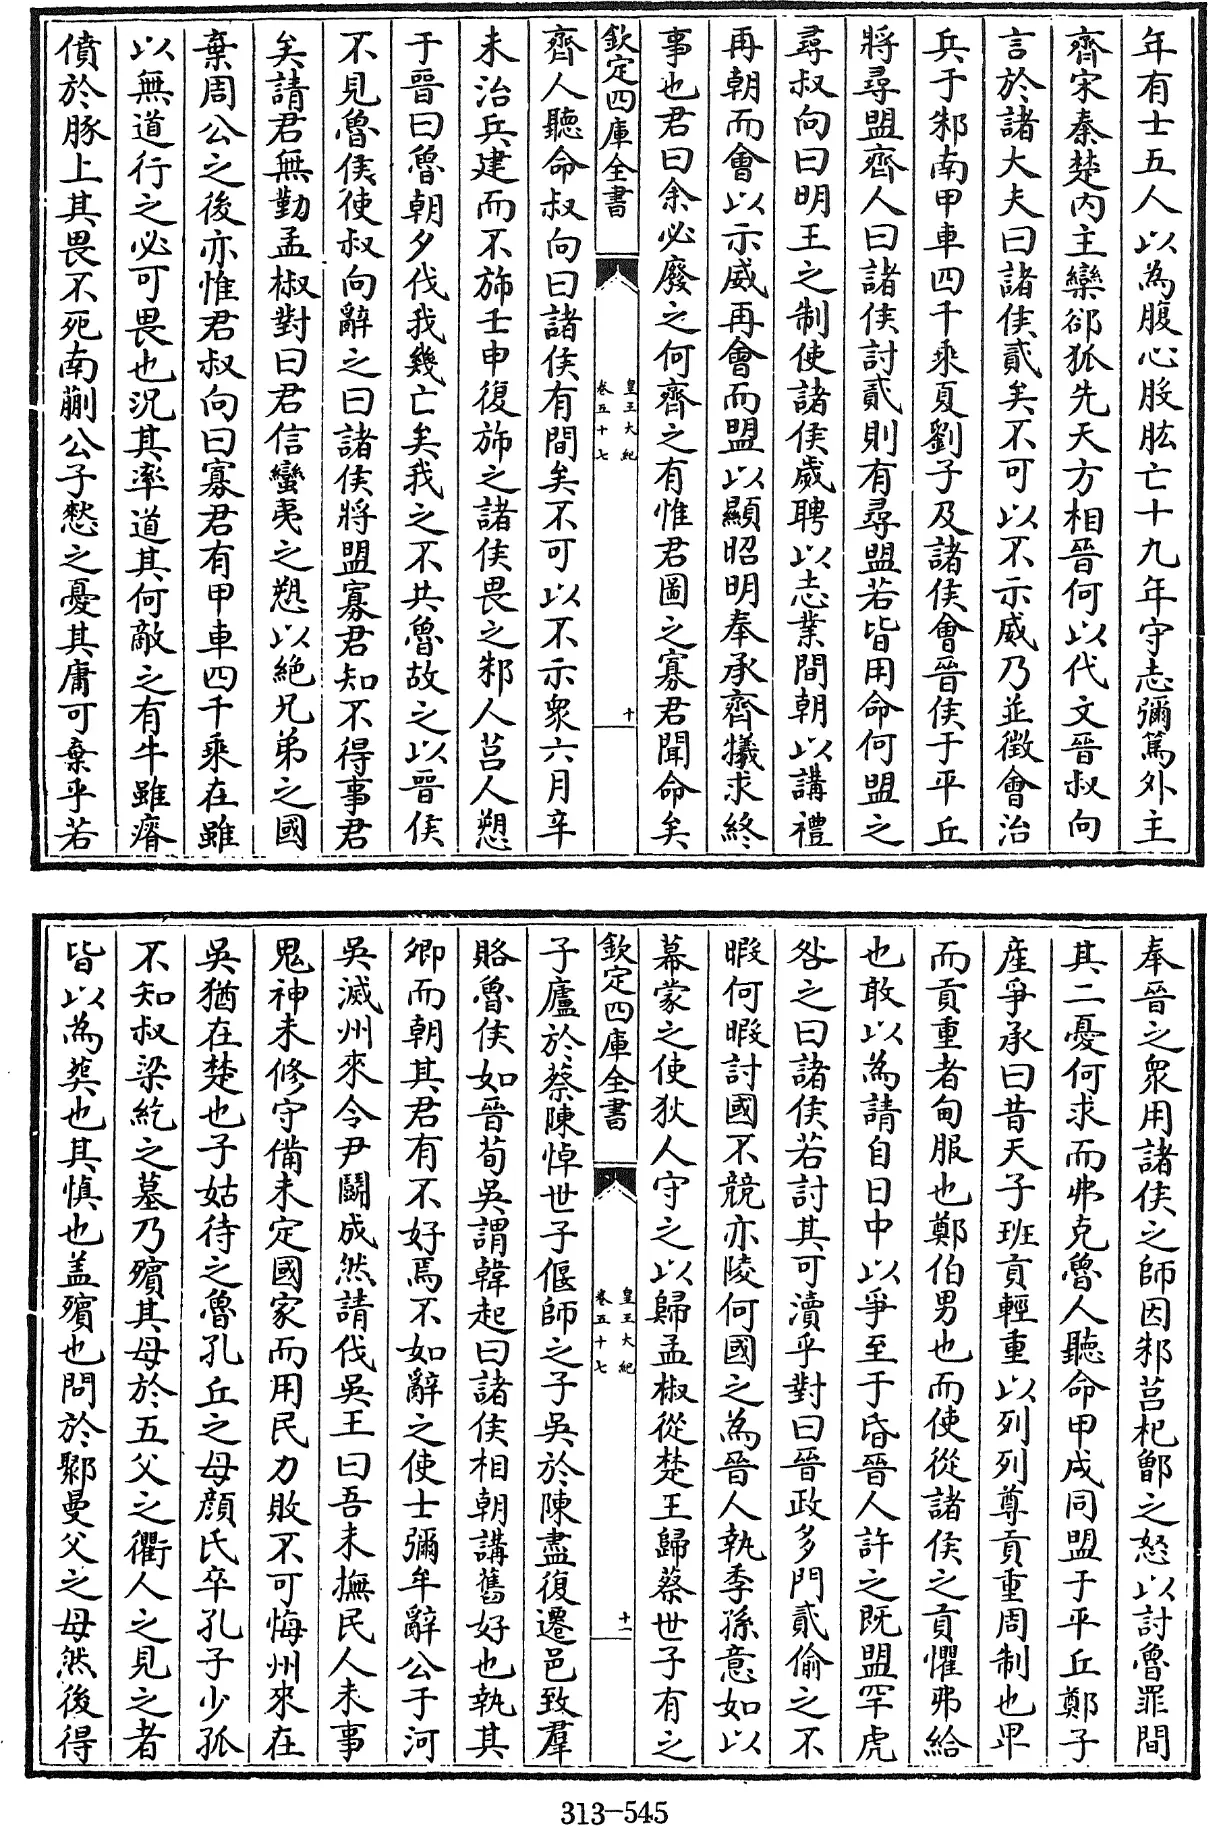 年有士五人以為腹心股肱亡十九年守志彌篤外主
齊宋秦楚内主欒郤狐先天方相晉何以代文晉叔向
言於諸大夫曰諸侯貳矣不可以不示威乃並徵會治
兵于邾南甲車四千乘夏劉子及諸侯會晉侯于平丘
將尋盟齊人曰諸侯討貳則有尋盟若皆用命何盟之
尋叔向曰明王之制使諸侯歲聘以志業間朝以講禮
再朝而會以示威再會而盟以顯昭明奉承齊犧求終
事也君曰余必廢之何齊之有惟君圖之寡君聞命矣
欽定四庫全書
皇王大紀
卷五十七
十
齊人聽命叔向曰諸侯有間矣不可以不示衆六月辛
未治兵建而不斾壬申復斾之諸侯畏之邾人莒人愬
于晉曰魯朝夕伐我幾亡矣我之不共魯故之以晉侯
不見魯侯使叔向辭之曰諸侯將盟寡君知不得事君
矣請君無勤孟椒對曰君信蠻夷之愬以絶兄弟之國
棄周公之後亦惟君叔向曰寡君有甲車四千乘在雖
以無道行之必可畏也况其率道其何敵之有牛雖瘠
僨於豚上其畏不死南蒯公子憖之憂其庸可棄乎若
奉晉之衆用諸侯之師因邾莒杞鄫之怒以討魯罪間
其二憂何求而弗克魯人聽命甲戌同盟于平丘鄭子
產爭承曰昔天子班貢輕重以列列尊貢重周制也卑
而貢重者甸服也鄭伯男也而使從諸侯之貢懼弗給
也敢以為請自日中以爭至于昏晉人許之既盟罕虎
咎之曰諸侯若討其可瀆乎對曰晉政多門貳偷之不
暇何暇討國不競亦陵何國之為晉人執季孫意如以
幕蒙之使狄人守之以歸孟椒從楚王歸蔡世子有之
欽定四庫全書
皇王大紀
卷五十七
十一
子廬於蔡陳悼世子偃師之子吳於陳盡復遷邑致羣
賂魯侯如晉荀吳謂韓起曰諸侯相朝講舊好也執其
卿而朝其君有不好焉不如辭之使士彌牟辭公于河
吳滅州來令尹鬭成然請伐吳王曰吾未撫民人未事
鬼神未修守備未定國家而用民力敗不可悔州來在
吳猶在楚也子姑待之魯孔丘之母顔氏卒孔子少孤
不知叔梁紇之墓乃殯其母於五父之衢人之見之者
皆以為葬也其慎也盖殯也問於郰曼父之母然後得
313-545